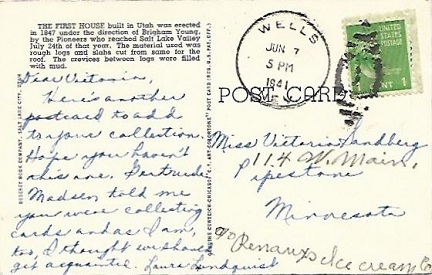 THE FIRST HOUSE built in Utah was erected
in 1847 under the direction of Brigham Young,
by the Pioneers who reached Salt Lake Valley
July 24th of that year. The material used was
rough logs and slabs cut from same for the
roof. The crevices between logs were filled
with mud.
Dear Victoria,
Here's another
postcard to add
to your collection.
Hope you haven't
this one. Gertrude
Madsen told me
you were collecting
cards and as I am,
too, I thought we should
get acquainted. Laura Lundquist
DESERET BOOK COMPANY, SALT LAKE CITY
WELLS
JUN 7
5 PM
1941
UNITED STATES
POSTAGE
1
POST CARD
Miss Victoria Sandberg
114 W. Main,
Pipestone
Minnesota
c/o Renaux's Ice cream Co